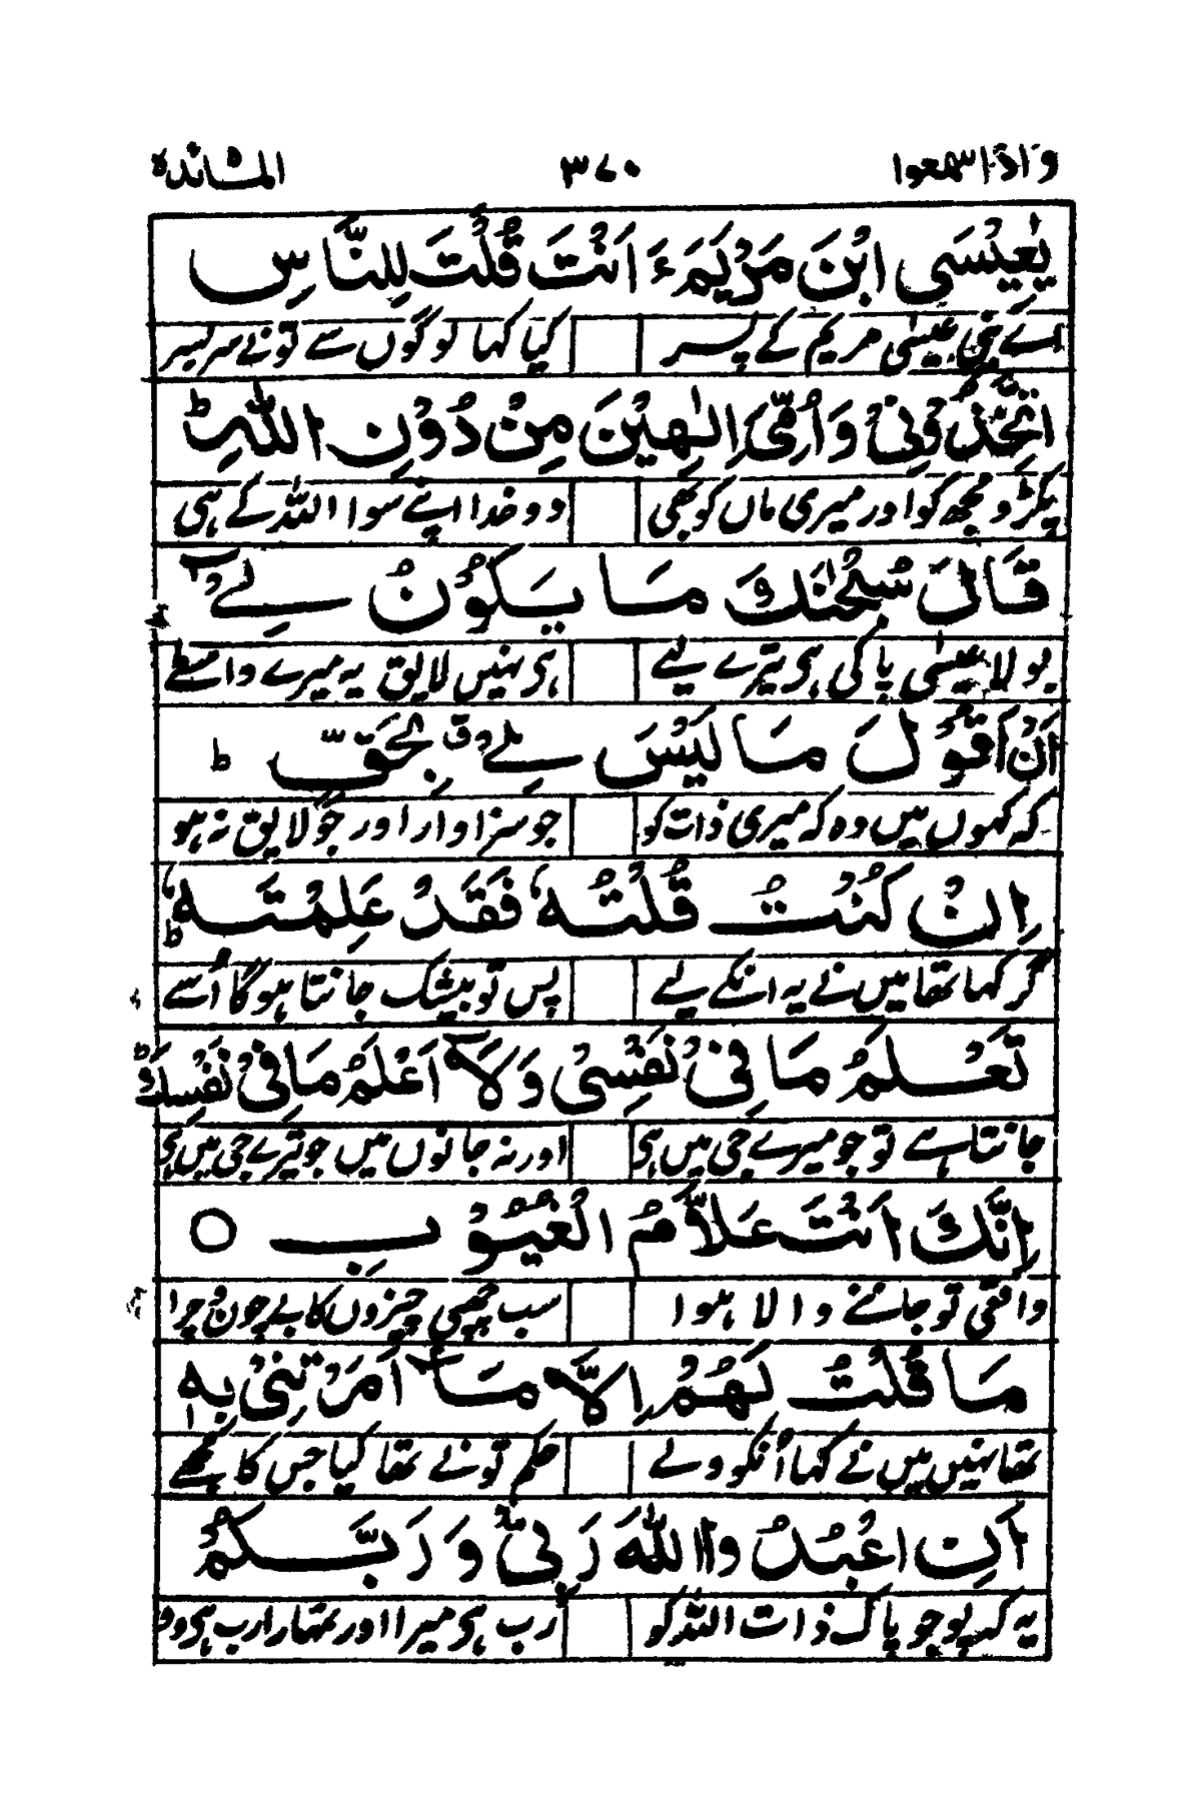 واذا سمعوا ۳۷۰ المائدة
يٰعِيْسَى ابْنَ مَرْيَمَ ءَ اَنْتَ قُلْتَ لِلنَّاسِ
اے عیسٰی مریم کے پسر کیا کہا لوگوں سے تو نے سر بسر
اتَّخِذُوْنِيْ وَاُمِّيَ اِلٰهَيْنِ مِنْ دُوْنِ اللّٰهِ ط
پکڑو مجھ کو اور میری ماں کو بھی دو خدا اپنے سوا اللہ کے ہی
قَالَ سُبْحٰنَكَ مَا يَكُوْنُ لِيْ
بولا عیسٰی پاکی ہی تیرے لیے ہی نہیں لایق یہ میرے واسطے
اَنْ اَقُوْلَ مَا لَيْسَ لِيْ ق بِحَقٍّ ط
کہ کہوں میں وہ کہ میری ذات کو جو سزاوار اور جو لایق نہ ہو
اِنْ كُنْتُ قُلْتُهٗ فَقَدْ عَلِمْتَهٗ ط
گر کہا تھا میں نے یہ انکے لیے پس تو بیشک جانتا ہوگا اُسے
تَعْلَمُ مَا فِيْ نَفْسِيْ وَلَآ اَعْلَمُ مَا فِيْ نَفْسِكَ ط
جانتا ہے تو جو میرے جی میں ہی اور نہ جانوں میں جو تیرے جی میں ہی
اِنَّكَ اَنْتَ عَلَّامُ الْغُيُوْبِ ○
واقعی تو جاننے والا ہوا سب چھپی چیزوں کا بے چون و چرا
مَا قُلْتُ لَهُمْ اِلَّا مَآ اَمَرْتَنِيْ بِهٖ
تھا نہیں میں نے کہا اُنکو ولے حکم تو نے تھا کیا جس کا مجھے
اَنِ اعْبُدُوا اللّٰهَ رَبِّيْ وَرَبَّكُمْ
یہ کہ پوجو پاک ذات اللہ کو رب ہی میرا اور تمہارا رب ہی وو